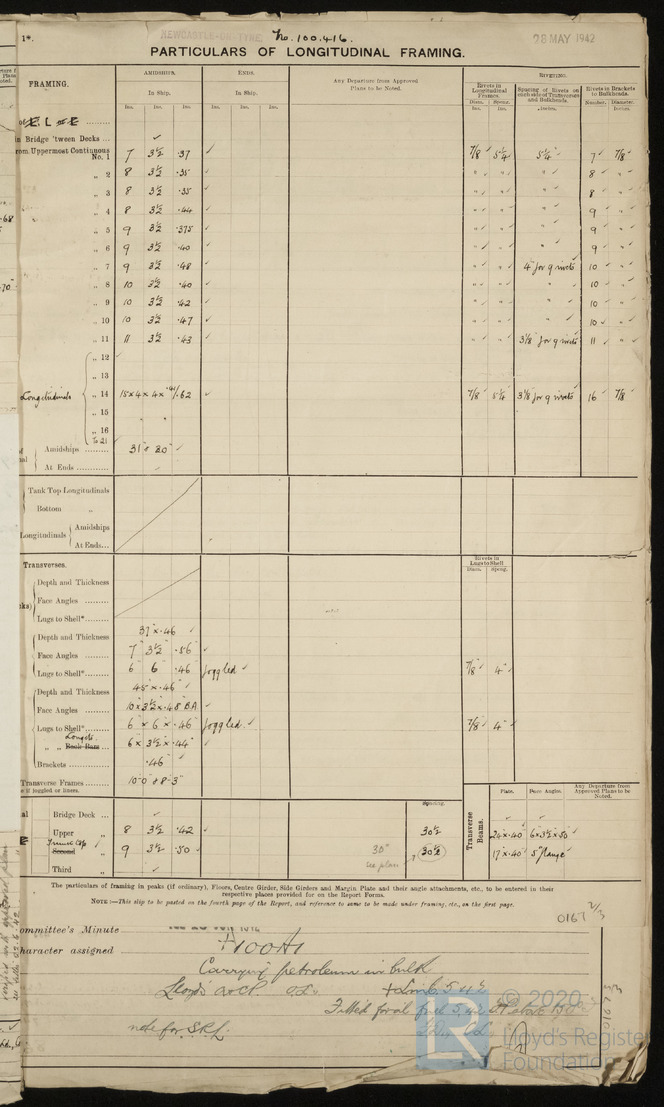 1*. NEWCASTLE-ON-TYNE No. 100,416. 28 MAY 1942
PARTICULARS OF LONGITUDINAL FRAMING.
FRAMING. AMIDSHIPS. ENDS. Any Departure from Approved Plans to be Noted. RIVETING.
In Ship. In Ship. Rivets in Longitudinal Frames. Spacing of Rivets on each side of Transverses and Bulkheads. Rivets in Brackets to Bulkheads.
Ins. Ins. Ins. Ins. Ins. Ins. Diam. Spcng. Inches. Number. Diameter.
in Bridge 'tween Decks ... ✓
rom Uppermost Continuous
No. 1 7 3½ .37 ✓ 7/8 ✓ 5¼ 5¼" ✓ 7 ✓ 7/8 ✓
„ 2 8 3½ .35 ✓ " " " ✓ 8 ✓ " ✓
„ 3 8 3½ .35 ✓ " " " ✓ 8 ✓ " ✓
„ 4 8 3½ .44 ✓ " " " ✓ 9 ✓ " ✓
„ 5 9 3½ .375 ✓ " " " ✓ 9 ✓ " ✓
„ 6 9 3½ .40 ✓ " " " ✓ 9 ✓ " ✓
„ 7 9 3½ .48 ✓ " " 4" for 9 rivets 10 ✓ " ✓
„ 8 10 3½ .40 ✓ " " " 10 ✓ " ✓
„ 9 10 3½ .42 ✓ " " " ✓ 10 ✓ " ✓
„ 10 10 3½ .47 ✓ " " " ✓ 10 ✓ " ✓
„ 11 11 3½ .43 ✓ " " 3⅛" for 9 rivets 11 ✓ " ✓
„ 12 ✓
„ 13
Longitudinals „ 14 15 x 4 x 4 x .41/.62 ✓ 7/8 ✓ 5¼ 3⅛ for 9 rivets 16 ✓ 7/8 ✓
„ 15
„ 16
To 21
Amidships ......... 31" & 30" ✓
At Ends ............
Tank Top Longitudinals
Bottom „
Longitudinals Amidships
At Ends...
Transverses. Rivets in Lugs to Shell
Diam. Spcng.
Depth and Thickness
Face Angles .........
Lugs to Shell*.......
Depth and Thickness 37" x .46 ✓
Face Angles ......... 7" 3½" .56" ✓
Lugs to Shell*....... 6" 6" .46" Joggled ✓ 7/8" ✓ 4" ✓
Depth and Thickness 45" x .46" ✓
Face Angles ......... 10 x 3½ x .48 BA ✓
Lugs to Shell*....... 6" x 6" x .46" Joggled. ✓ 7/8 ✓ 4" ✓
Longls.
„ „ Back Bars... 6" x 3½" x .44" ✓
Brackets ............... .46" ✓
Transverse Frames ........ 10-0" & 8-3"
Spacing. Transverse Beams. Plate. Face Angles. Any Departure from Approved Plans to be Noted.
Bridge Deck ... ✓
Upper „ 8 3½ .42 ✓ 30½ 24 x .40" 6 x 3½ x .50"
Trunk Top
Second „ 9 3½ .50 ✓ 30" 30½ 17" x .40" 5" flange
see plan
Third „ ✓
The particulars of framing in peaks (if ordinary), Floors, Centre Girder, Side Girders and Margin Plate and their angle attachments, etc., to be entered in their
respective places provided for on the Report Forms.
NOTE :—This slip to be pasted on the fourth page of the Report, and reference to same to be made under framing, etc., on the first page.
0167 2/3
ommittee's Minute
haracter assigned +100A1
Carrying petroleum in bulk
Lloyds A&CP. +LMC 5,42
Fitted for oil fuel 5,42
note for S.R.L.
© 2020
Lloyd's Register
Foundation
LR